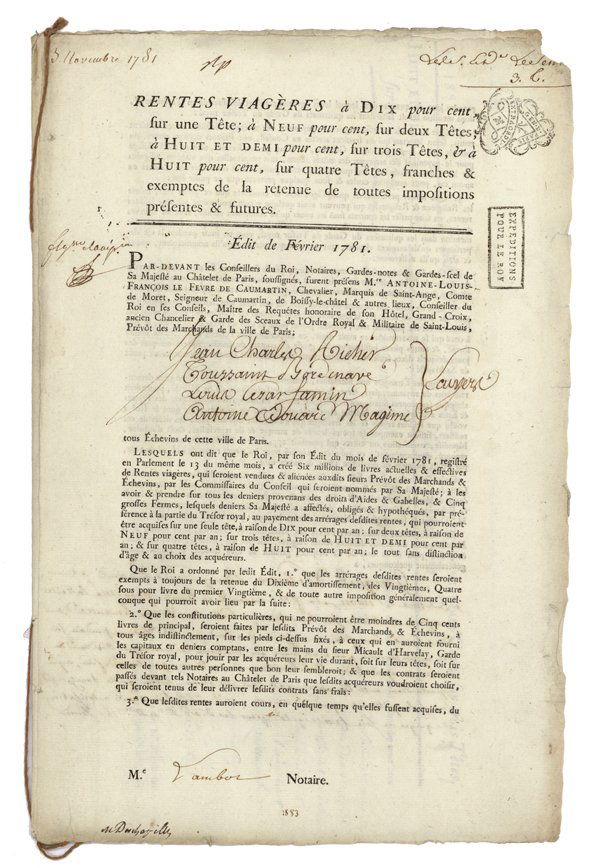 5 Novembre 1781
3. L.
RENTES VIAGÈRES à DIX pour cent,
sur une Tête; à NEUF pour cent, sur deux Têtes;
à HUIT ET DEMI pour cent, sur trois Têtes, & à
HUIT pour cent, sur quatre Têtes, franches &
exemptes de la retenue de toutes impositions
présentes & futures.
EXPEDITIONS
POUR LE ROY
Édit de Février 1781.
PAR-DEVANT les Conseillers du Roi, Notaires, Gardes-notes & Gardes-scel de
Sa Majesté au Châtelet de Paris, soussignés, furent présens M.rs ANTOINE-LOUIS-
FRANÇOIS LE FEVRE DE CAUMARTIN, Chevalier, Marquis de Saint-Ange, Comte
de Moret, Seigneur de Caumartin, de Boissy-le-châtel & autres lieux, Conseiller du
Roi en ses Conseils, Maître des Requêtes honoraire de son Hôtel, Grand-Croix,
ancien Chancelier & Garde des Sceaux de l'Ordre Royal & Militaire de Saint-Louis,
Prévôt des Marchands de la ville de Paris;
Jean Charles Richer
Toussaint
Louis Cesar famin
Antoine Edouard Magimel
tous Échevins de cette ville de Paris.
LESQUELS ont dit que le Roi, par son Édit du mois de février 1781, registré
en Parlement le 13 du même mois, a créé Six millions de livres actuelles & effectives
de Rentes viagères, qui seroient vendues & aliénées auxdits sieurs Prévôt des Marchands &
Échevins, par les Commissaires du Conseil qui seroient nommés par Sa Majesté; à les
avoir & prendre sur tous les deniers provenans des droits d'Aides & Gabelles, & Cinq
grosses Fermes, lesquels deniers Sa Majesté a affectés, obligés & hypothéqués, par pré-
férence à la partie du Trésor royal, au payement des arrérages desdites rentes, qui pourroient
être acquises sur une seule tête, à raison de DIX pour cent par an; sur deux têtes, à raison de
NEUF pour cent par an; sur trois têtes, à raison de HUIT ET DEMI pour cent par
an; & sur quatre têtes, à raison de HUIT pour cent par an; le tout sans distinction
d'âge & au choix des acquéreurs.
Que le Roi a ordonné par ledit Édit, 1.° que les arrérages desdites rentes seroient
exempts à toujours de la retenue du Dixième d'amortissement, des Vingtièmes, Quatre
sous pour livre du premier Vingtième, & de toute autre imposition généralement quel-
conque qui pourroit avoir lieu par la suite:
2.° Que les constitutions particulières, qui ne pourroient être moindres de Cinq cents
livres de principal, seroient faites par lesdits Prévôt des Marchands, & Échevins, à
tous âges indistinctement, sur les pieds ci-dessus fixés, à ceux qui en auroient fourni
les capitaux en deniers comptans, entre les mains du sieur Micault d'Harvelay, Garde
du Trésor royal, pour jouir par les acquéreurs leur vie durant, soit sur leurs têtes, soit sur
celles de toutes autres personnes que bon leur sembleroit; & que les contrats seroient
passés devant tels Notaires au Châtelet de Paris que lesdits acquéreurs voudroient choisir,
qui seroient tenus de leur délivrer lesdits contrats sans frais:
3.° Que lesdites rentes auroient cours, en quelque temps qu'elles fussent acquises, du
M.e Lambot Notaire.
1883